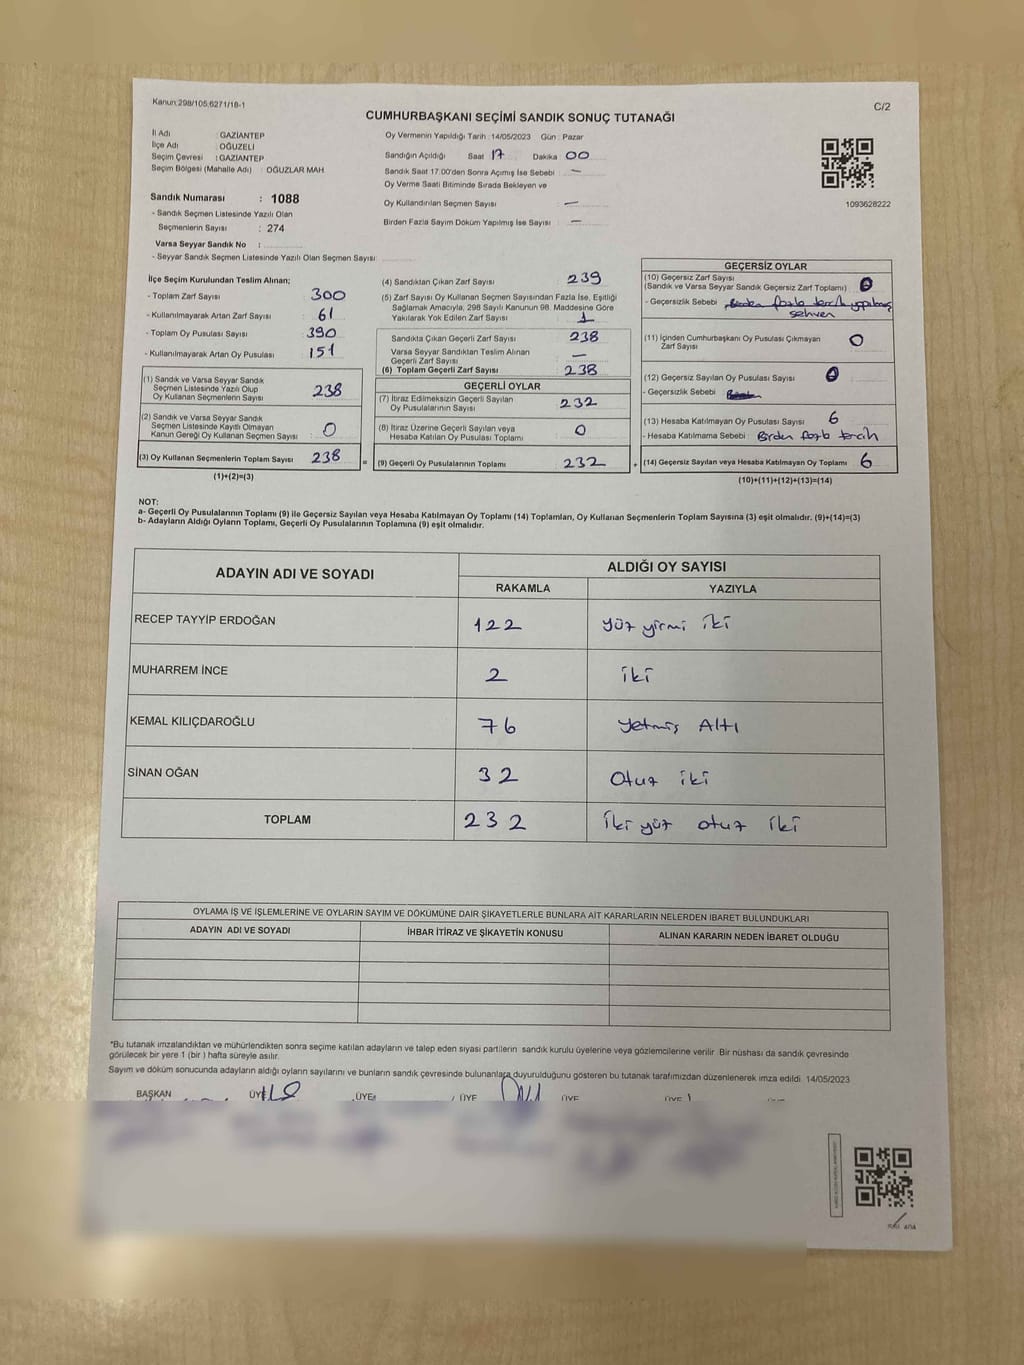 Kanun:298/105,6271/18-1
C/2
CUMHURBAŞKANI SEÇİMİ SANDIK SONUÇ TUTANAĞI
İl Adı : GAZİANTEP
İlçe Adı : OĞUZELİ
Seçim Çevresi : GAZİANTEP
Seçim Bölgesi (Mahalle Adı) : OĞUZLAR MAH.
Sandık Numarası : 1088
- Sandık Seçmen Listesinde Yazılı Olan
Seçmenlerin Sayısı : 274
Varsa Seyyar Sandık No :
- Seyyar Sandık Seçmen Listesinde Yazılı Olan Seçmen Sayısı:
Oy Vermenin Yapıldığı Tarih :14/05/2023 Gün : Pazar
Sandığın Açıldığı Saat 17 Dakika 00
Sandık Saat 17.00'den Sonra Açılmış İse Sebebi : -
Oy Verme Saati Bitiminde Sırada Bekleyen ve
Oy Kullandırılan Seçmen Sayısı -
Birden Fazla Sayım Döküm Yapılmış İse Sayısı : -
1093628222
İlçe Seçim Kurulundan Teslim Alınan;
- Toplam Zarf Sayısı : 300
- Kullanılmayarak Artan Zarf Sayısı : 61
- Toplam Oy Pusulası Sayısı : 390
- Kullanılmayarak Artan Oy Pusulası : 151
(1) Sandık ve Varsa Seyyar Sandık
Seçmen Listesinde Yazılı Olup
Oy Kullanan Seçmenlerin Sayısı : 238
(2) Sandık ve Varsa Seyyar Sandık
Seçmen Listesinde Kayıtlı Olmayan
Kanun Gereği Oy Kullanan Seçmen Sayısı : 0
(3) Oy Kullanan Seçmenlerin Toplam Sayısı : 238
(1)+(2)=(3)
(4) Sandıktan Çıkan Zarf Sayısı : 239
(5) Zarf Sayısı Oy Kullanan Seçmen Sayısından Fazla İse, Eşitliği
Sağlamak Amacıyla, 298 Sayılı Kanunun 98. Maddesine Göre
Yakılarak Yok Edilen Zarf Sayısı : 1
Sandıkta Çıkan Geçerli Zarf Sayısı : 238
Varsa Seyyar Sandıktan Teslim Alınan
Geçerli Zarf Sayısı : -
(6) Toplam Geçerli Zarf Sayısı : 238
GEÇERLİ OYLAR
(7) İtiraz Edilmeksizin Geçerli Sayılan
Oy Pusulalarının Sayısı : 232
(8) İtiraz Üzerine Geçerli Sayılan veya
Hesaba Katılan Oy Pusulası Toplamı : 0
= (9) Geçerli Oy Pusulalarının Toplamı : 232
GEÇERSİZ OYLAR
(10) Geçersiz Zarf Sayısı
(Sandık ve Varsa Seyyar Sandık Geçersiz Zarf Toplamı) : 0
- Geçersizlik Sebebi : Birden fazla tercih yapılmış
sehven
(11) İçinden Cumhurbaşkanı Oy Pusulası Çıkmayan
Zarf Sayısı : 0
(12) Geçersiz Sayılan Oy Pusulası Sayısı : 0
- Geçersizlik Sebebi :
(13) Hesaba Katılmayan Oy Pusulası Sayısı : 6
- Hesaba Katılmama Sebebi : Birden fazla tercih
+ (14) Geçersiz Sayılan veya Hesaba Katılmayan Oy Toplamı : 6
(10)+(11)+(12)+(13)=(14)
NOT:
a- Geçerli Oy Pusulalarının Toplamı (9) ile Geçersiz Sayılan veya Hesaba Katılmayan Oy Toplamı (14) Toplamları, Oy Kullanan Seçmenlerin Toplam Sayısına (3) eşit olmalıdır. (9)+(14)=(3)
b- Adayların Aldığı Oyların Toplamı, Geçerli Oy Pusulalarının Toplamına (9) eşit olmalıdır.
ADAYIN ADI VE SOYADI ALDIĞI OY SAYISI
RAKAMLA YAZIYLA
RECEP TAYYİP ERDOĞAN 122 yüz yirmi iki
MUHARREM İNCE 2 iki
KEMAL KILIÇDAROĞLU 76 yetmiş Altı
SİNAN OĞAN 32 Otuz iki
TOPLAM 232 iki yüz otuz iki
OYLAMA İŞ VE İŞLEMLERİNE VE OYLARIN SAYIM VE DÖKÜMÜNE DAİR ŞİKAYETLERLE BUNLARA AİT KARARLARIN NELERDEN İBARET BULUNDUKLARI
ADAYIN ADI VE SOYADI İHBAR İTİRAZ VE ŞİKAYETİN KONUSU ALINAN KARARIN NEDEN İBARET OLDUĞU
*Bu tutanak imzalandıktan ve mühürlendikten sonra seçime katılan adayların ve talep eden siyasi partilerin sandık kurulu üyelerine veya gözlemcilerine verilir. Bir nüshası da sandık çevresinde
görülecek bir yere 1 (bir ) hafta süreyle asılır.
Sayım ve döküm sonucunda adayların aldığı oyların sayılarını ve bunların sandık çevresinde bulunanlara duyurulduğunu gösteren bu tutanak tarafımızdan düzenlenerek imza edildi. 14/05/2023
BAŞKAN ÜYE ÜYE ÜYE ÜYE ÜYE